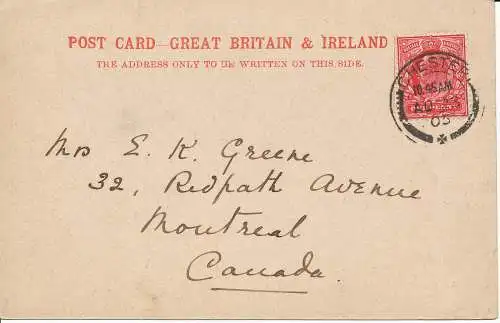 POST CARD—GREAT BRITAIN & IRELAND
THE ADDRESS ONLY TO BE WRITTEN ON THIS SIDE.
CHESTER
10.45 AM
AU
03
Mrs E. K. Greene
32, Redpath Avenue
Montreal
Canada.